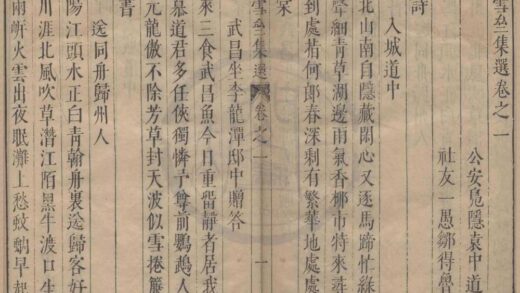 雪叁集選卷之一
公安鳬隱袁中道
社友一愚鄒得魯
詩
入城道中
北山南自隱藏閑心又逐馬蹄忙綠
聲細青草湖邊雨氣香椰市特來尋
到處若何郎春深剩有繁華地處處
裳
雪叁集選
卷之一
一
武昌坐李龍潭邸中贈答
來三食武昌魚今日重畱靜者居我
慕道君多任俠獨憐予尊前鸚鵡人
元龍傲不除芳草封天波似雪捲簾
書
送同舟歸州人
陽江頭木正白青翰舟裏送歸客好
川涯北風吹草潛江陌黑牛渡口生
雨㟁火雲出夜眠灘上愁蚊蚋早起